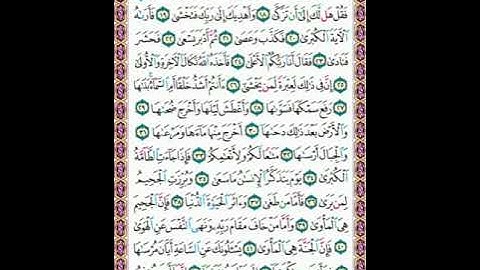 فَقُلْ هَل لَّكَ إِلَىٰ أَن تَزَكَّىٰ ١٨ وَأَهْدِيَكَ إِلَىٰ رَبِّكَ فَتَخْشَىٰ ١٩ فَأَرَىٰهُ
الْآيَةَ الْكُبْرَىٰ ٢٠ فَكَذَّبَ وَعَصَىٰ ٢١ ثُمَّ أَدْبَرَ يَسْعَىٰ ٢٢ فَحَشَرَ
فَنَادَىٰ ٢٣ فَقَالَ أَنَا۠ رَبُّكُمُ الْأَعْلَىٰ ٢٤ فَأَخَذَهُ اللَّهُ نَكَالَ الْآخِرَةِ وَالْأُولَىٰ
٢٥ إِنَّ فِي ذَٰلِكَ لَعِبْرَةً لِّمَن يَخْشَىٰ ٢٦ ءَأَنتُمْ أَشَدُّ خَلْقًا أَمِ السَّمَاءُ ۚ بَنَىٰهَا
٢٧ رَفَعَ سَمْكَهَا فَسَوَّىٰهَا ٢٨ وَأَغْطَشَ لَيْلَهَا وَأَخْرَجَ ضُحَىٰهَا ٢٩
وَالْأَرْضَ بَعْدَ ذَٰلِكَ دَحَىٰهَا ٣٠ أَخْرَجَ مِنْهَا مَاءَهَا وَمَرْعَىٰهَا ٣١
وَالْجِبَالَ أَرْسَىٰهَا ٣٢ مَتَاعًا لَّكُمْ وَلِأَنْعَامِكُمْ ٣٣ فَإِذَا جَاءَتِ الطَّامَّةُ
الْكُبْرَىٰ ٣٤ يَوْمَ يَتَذَكَّرُ الْإِنسَانُ مَا سَعَىٰ ٣٥ وَبُرِّزَتِ الْجَحِيمُ
لِمَن يَرَىٰ ٣٦ فَأَمَّا مَن طَغَىٰ ٣٧ وَءَاثَرَ الْحَيَوٰةَ الدُّنْيَا ٣٨ فَإِنَّ الْجَحِيمَ
هِيَ الْمَأْوَىٰ ٣٩ وَأَمَّا مَنْ خَافَ مَقَامَ رَبِّهِ وَنَهَى النَّفْسَ عَنِ الْهَوَىٰ
٤٠ فَإِنَّ الْجَنَّةَ هِيَ الْمَأْوَىٰ ٤١ يَسْـَٔلُونَكَ عَنِ السَّاعَةِ أَيَّانَ مُرْسَىٰهَا